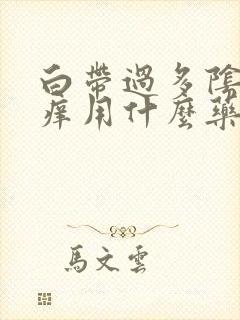 白帶過多陰
癢用什麼藥
馬文雲